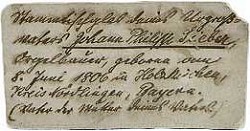 meines Urgroß-
vaters Johann Philipp Sieber,
Orgelbauer, geboren am
8. Juni 1806 in Holzkirchen,
Kreis Nördlingen, Bayern.
(Vater der Mutter meines Vaters).